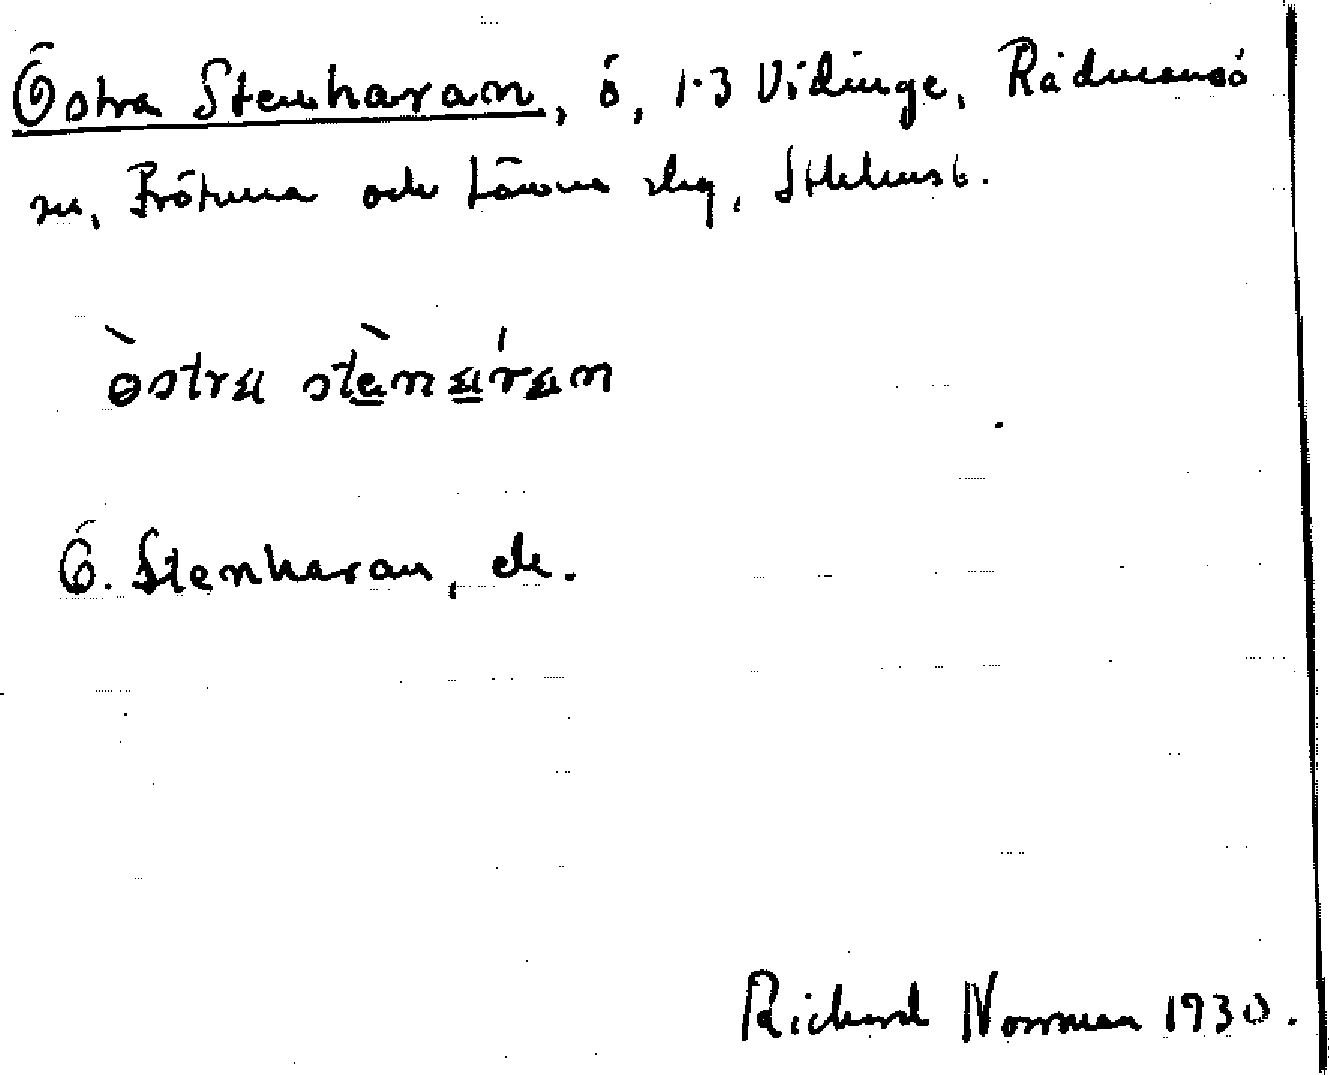 Östra Stenharan, ö, 1-3 Vidinge, Rådmansö
sn, Frötuna och Länna slg, Sthlmsl.
òstra stènáran
Ö. Stenharan, ek.
Richard Norrman 1930.